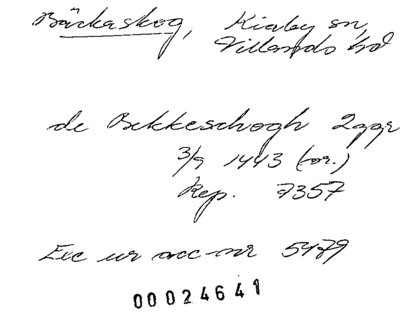 Bäckaskog, Kiaby sn,
Villands hd
de Bekkeschogh 2ggr
3/9 1443 (or.)
Rep. 7357
Exc ur acc-nr 5479
00024641